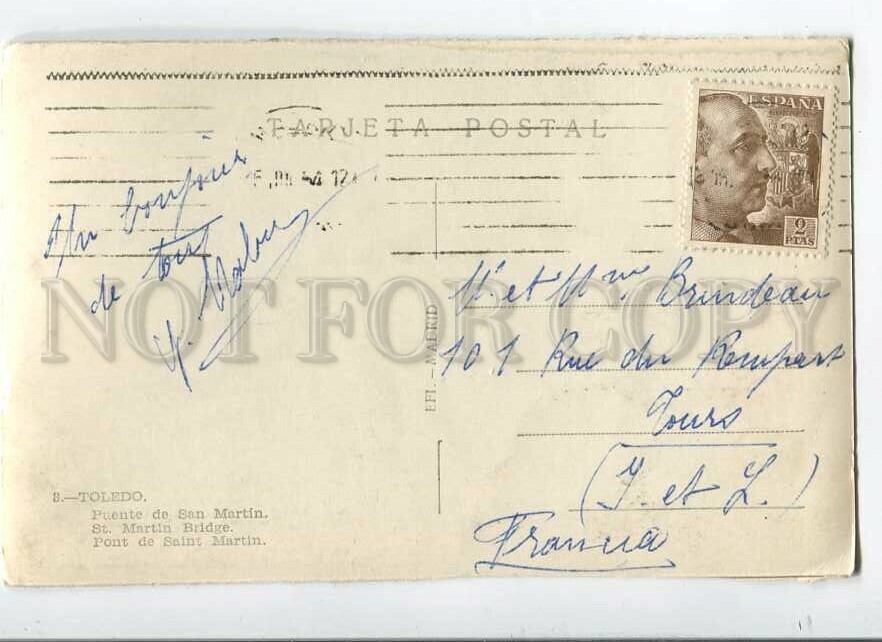 TARJETA POSTAL
ESPAÑA
CORREOS
2
PTAS
Un bonjour
de tous
M. et Mme Brindeau
101 Rue du Rempart
Tours
(I. et L.)
Francia
EFI.—MADRID
8.—TOLEDO.
Puente de San Martín.
St. Martin Bridge.
Pont de Saint Martin.
NOT FOR COPY